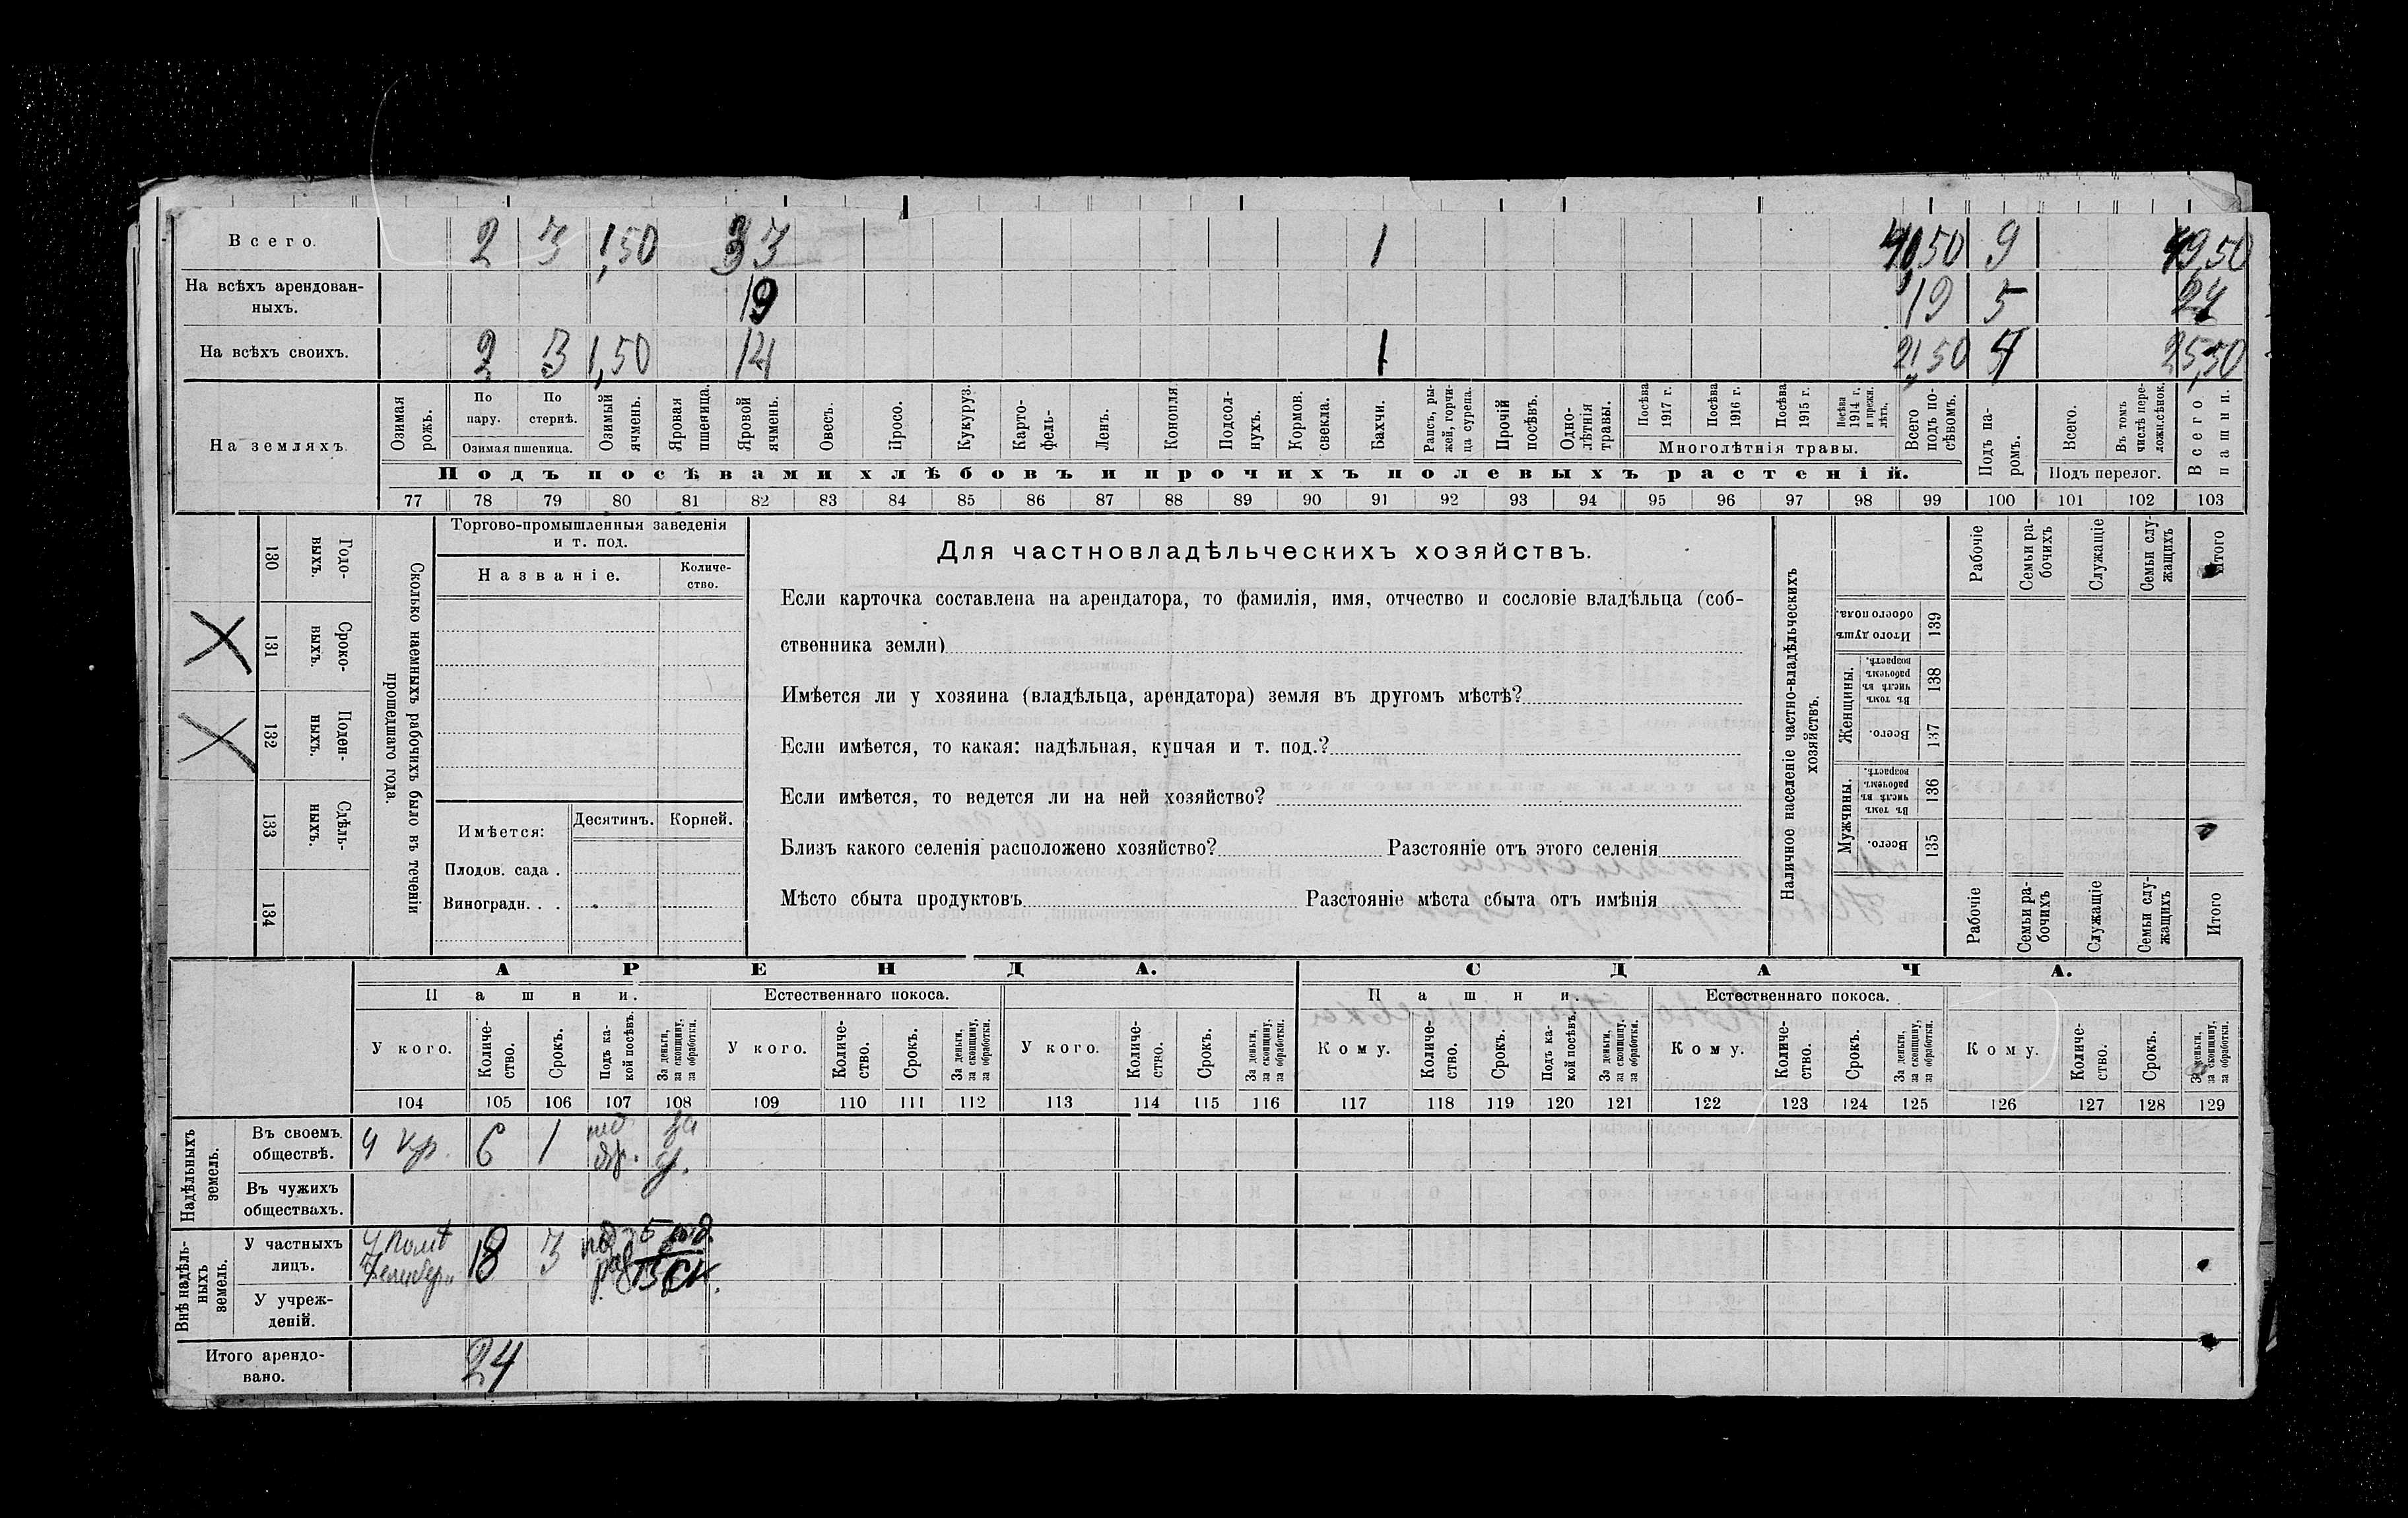 Всего. 2 3 1,50 33 1 40,50 9 49,50
На всѣхъ арендован-
ныхъ. 19 19 5 24
На всѣхъ своихъ. 2 3 1,50 14 1 21,50 4 25,50
На земляхъ.
Озимая рожь.
По пару.
По стернѣ.
Озимая пшеница.
Озимый ячмень.
Яровая пшеница.
Яровой ячмень.
Овесъ.
Просо.
Кукуруз.
Карто-
фель-
Ленъ.
Конопля
Подсол-
нухъ.
Кормов.
свекла.
Бахчи.
Рапсъ, ры-
жей, горчи-
ца сурепа.
Прочій
посѣвъ.
Одно-
лѣтнія
травы.
Посѣва 1917 г.
Посѣва 1916 г.
Посѣва 1915 г.
Посѣва 1914 г. и прежн. лѣтъ.
Многолѣтнія травы.
Всего
подъ по-
сѣвомъ.
Подъ па-
ромъ.
Всего.
Въ томъ
числѣ пере-
ложн. сѣнок.
Подъ перелог.
Всего
пашни.
Подъ посѣвами хлѣбовъ и прочихъ полевыхъ растеній.
77 78 79 80 81 82 83 84 85 86 87 88 89 90 91 92 93 94 95 96 97 98 99 100 101 102 103
130 Годо-
выхъ.
131 Сроко-
выхъ.
132 Поден-
ныхъ.
133 Сдѣль-
ныхъ.
134
Сколько наемныхъ рабочихъ было въ теченіи
прошедшаго года.
Торгово-промышленныя заведенія
и т. под.
Названіе.
Количе-
ство.
Имѣется:
Десятинъ.
Корней.
Плодов. сада .
Виноградн. . .
Для частновладѣльческихъ хозяйствъ.
Если карточка составлена на арендатора, то фамилія, имя, отчество и сословіе владѣльца (соб-
ственника земли)
Имѣется ли у хозяина (владѣльца, арендатора) земля въ другомъ мѣстѣ?
Если имѣется, то какая: надѣльная, купчая и т. под.?
Если имѣется, то ведется ли на ней хозяйство?
Близъ какого селенія расположено хозяйство? Разстояніе отъ этого селенія
Мѣсто сбыта продуктовъ Разстояніе мѣста сбыта отъ имѣнія
Наличное населеніе частно-владѣльческихъ
хозяйствъ.
Рабочіе
Семьи ра-
бочихъ
Служащіе
Семьи слу-
жащихъ
Итого
Итого душъ
обоего пола.
139
Женщины.
Въ томъ
числѣ въ
рабочемъ
возрастѣ.
138
Всего.
137
Мужчины.
Въ томъ
числѣ въ
рабочемъ
возрастѣ.
136
Всего.
135
Рабочіе
Семьи ра-
бочихъ
Служащіе
Семьи слу-
жащихъ
Итого
АРЕНДА. СДАЧА.
Пашни. Естественнаго покоса. Пашни. Естественнаго покоса.
У кого.
Количе-
ство.
Срокъ.
Подъ ка-
кой посѣвъ.
За деньги,
за скопщину,
за обработки.
У кого.
Количе-
ство.
Срокъ.
За деньги,
за скопщину,
за обработки.
У кого.
Количе-
ство.
Срокъ.
За деньги,
за скопщину,
за обработки.
Кому.
Количе-
ство.
Срокъ.
Подъ ка-
кой посѣвъ.
За деньги,
за скопщину,
за обработки.
Кому.
Количе-
ство.
Срокъ.
За деньги,
за скопщину,
за обработки.
Кому.
Количе-
ство.
Срокъ.
За деньги,
за скопщину,
за обработки.
104 105 106 107 108 109 110 111 112 113 114 115 116 117 118 119 120 121 122 123 124 125 126 127 128 129
Надѣльныхъ
земель.
Въ своемъ
обществѣ. У кр. 6 1
Въ чужихъ
обществахъ.
Внѣ надѣль-
ныхъ
земель.
У частныхъ
лицъ. 18 3
У учреж-
деній.
Итого арендо-
вано. 24